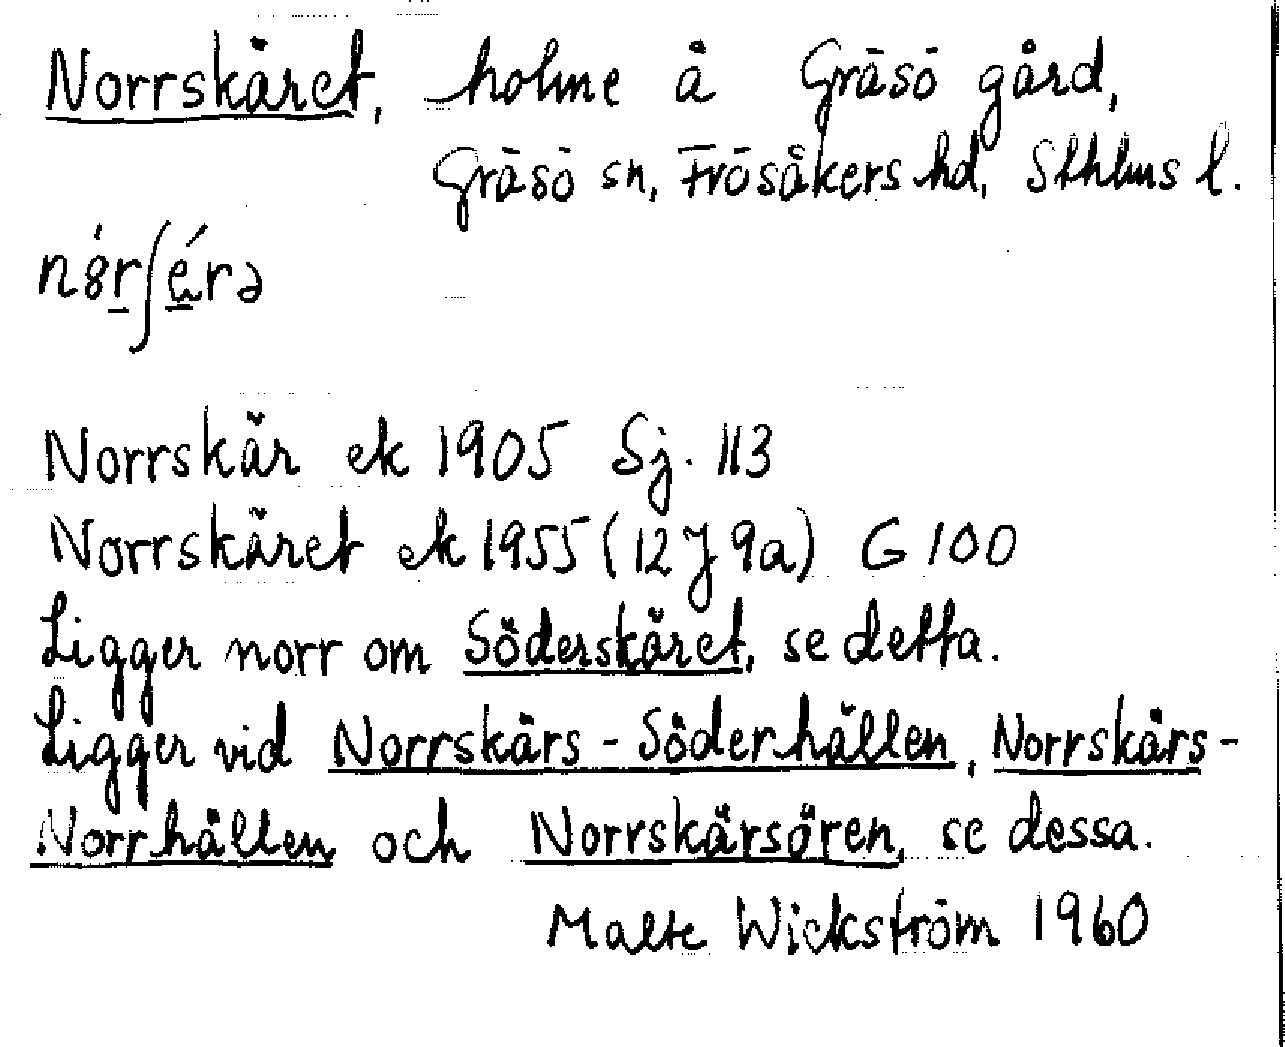 Norrskäret, holme å Gräsö gård,
Gräsö sn, Frösåkers hd, Sthlms l.
nȯ́rʃérə
Norrskär ek 1905 Sj. 113
Norrskäret ek 1955 (12 J 9a) G 100
Ligger norr om Söderskäret, se detta.
Ligger vid Norrskärs-Söderhällen, Norrskärs-
Norrhällen och Norrskärsören, se dessa.
Malte Wickström 1960